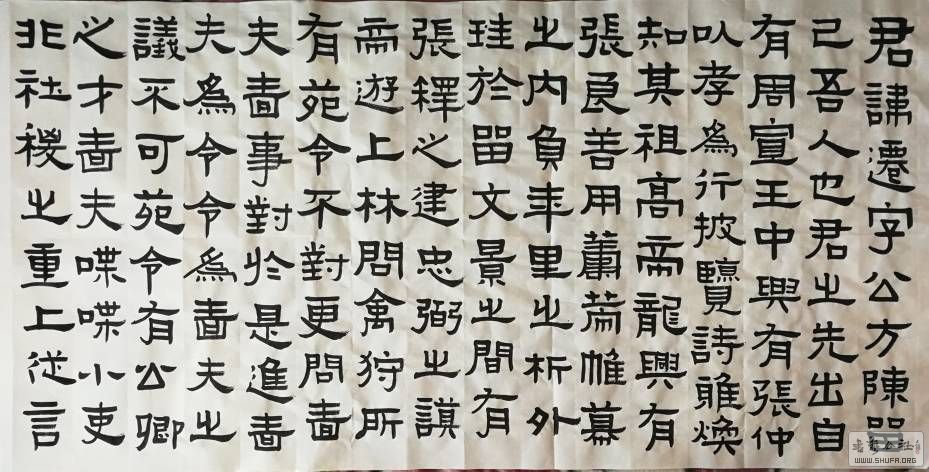 君諱遷字公方陳留
己吾人也君之先出自
有周宣王中興有張仲
以孝為行披覽詩雅煥
知其祖高帝龍興有
張良善用籌策帷幕
之內負年里之析外
珪於留文景之間有
張釋之建忠弼之謨
帝遊上林問禽狩所
有苑令不對更問嗇
夫嗇事對於是進嗇
夫為令令為嗇夫之
議不可苑令有公卿
之才嗇夫喋喋小吏
非社稷之重上從言
书法公社
WWW.SHUFA.ORG